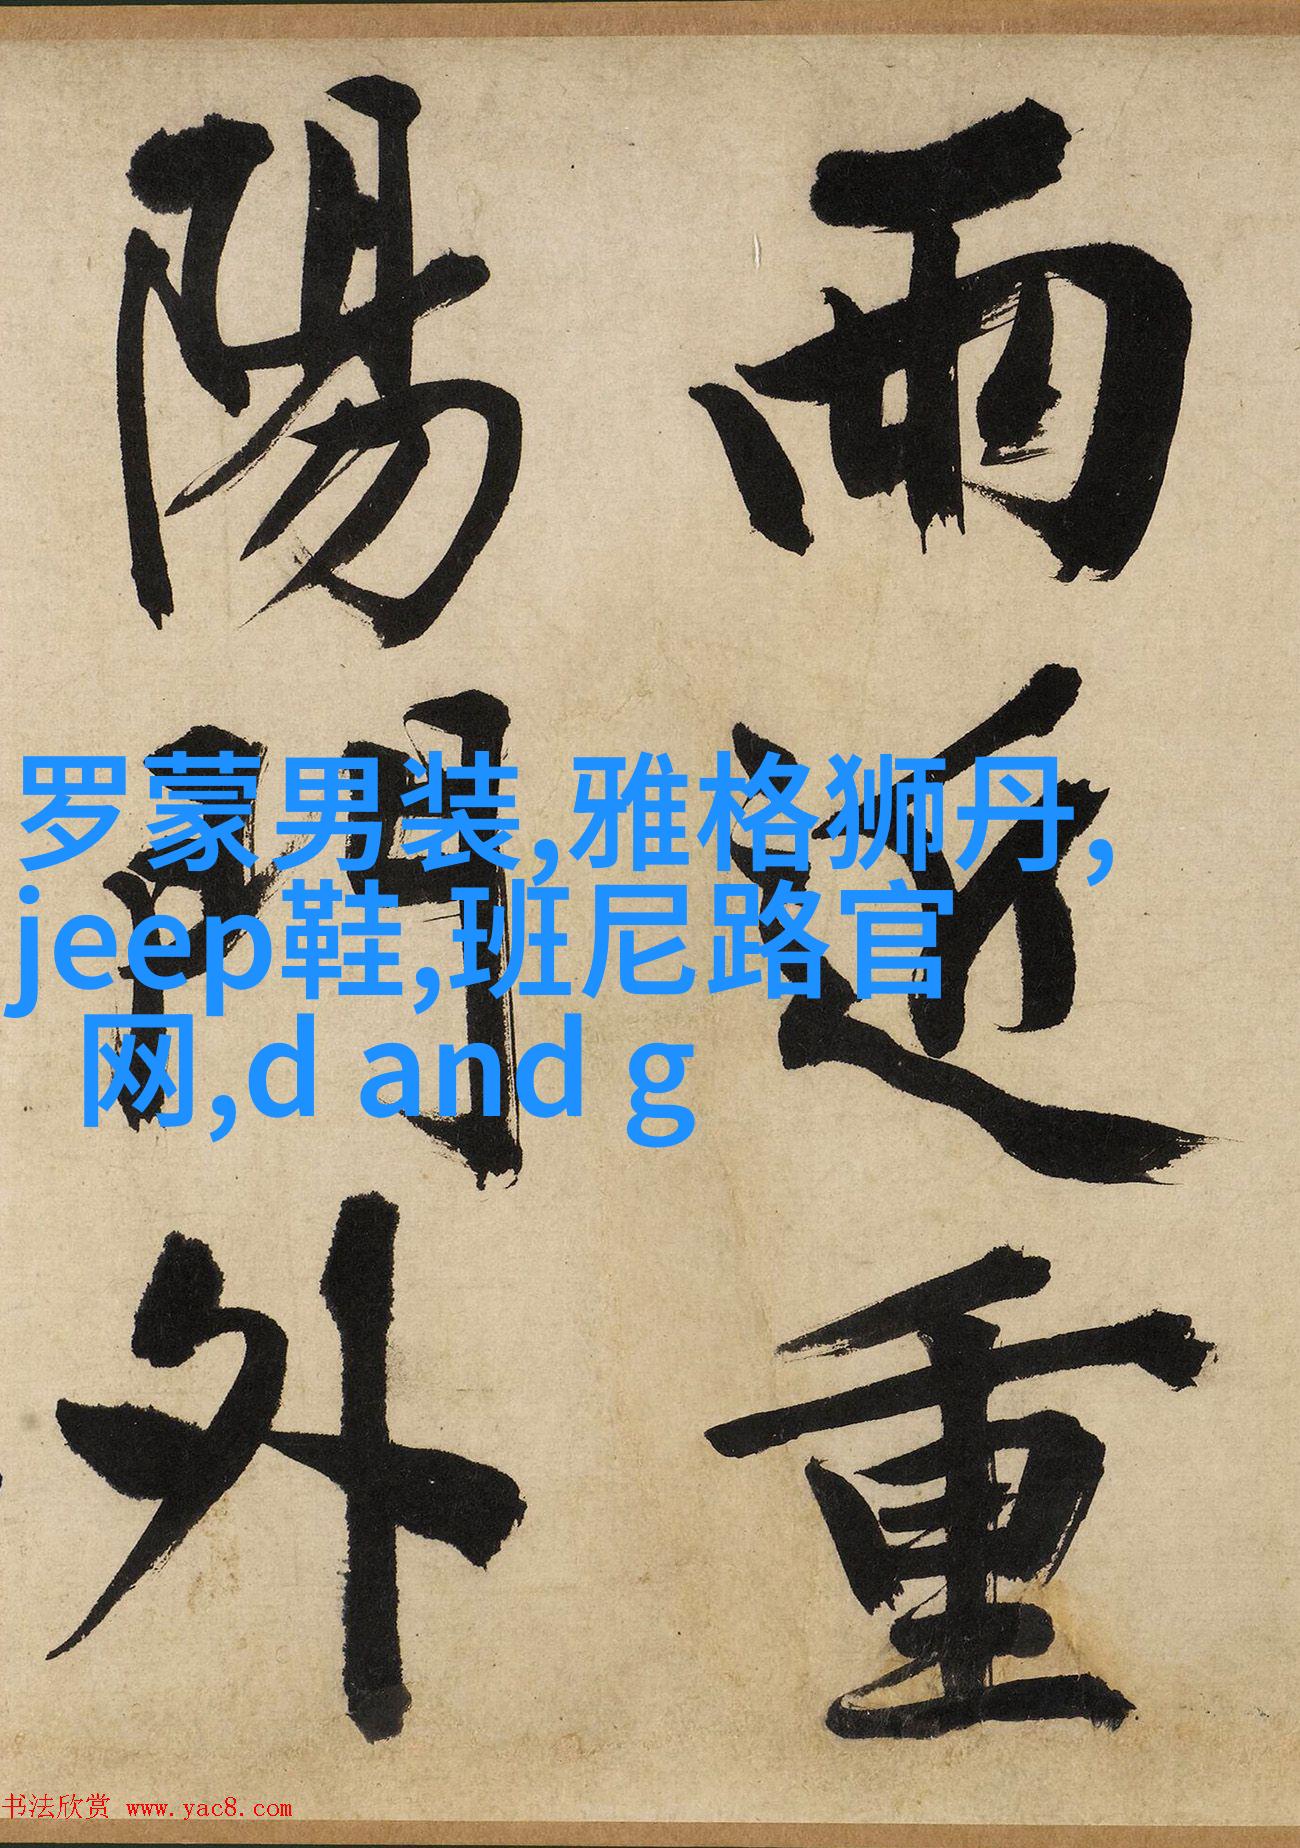 雨近重
陽門外
罗蒙男装,雅格狮丹,
jeep鞋,班尼路官
网,d and g
书法欣赏 www.yac8.com